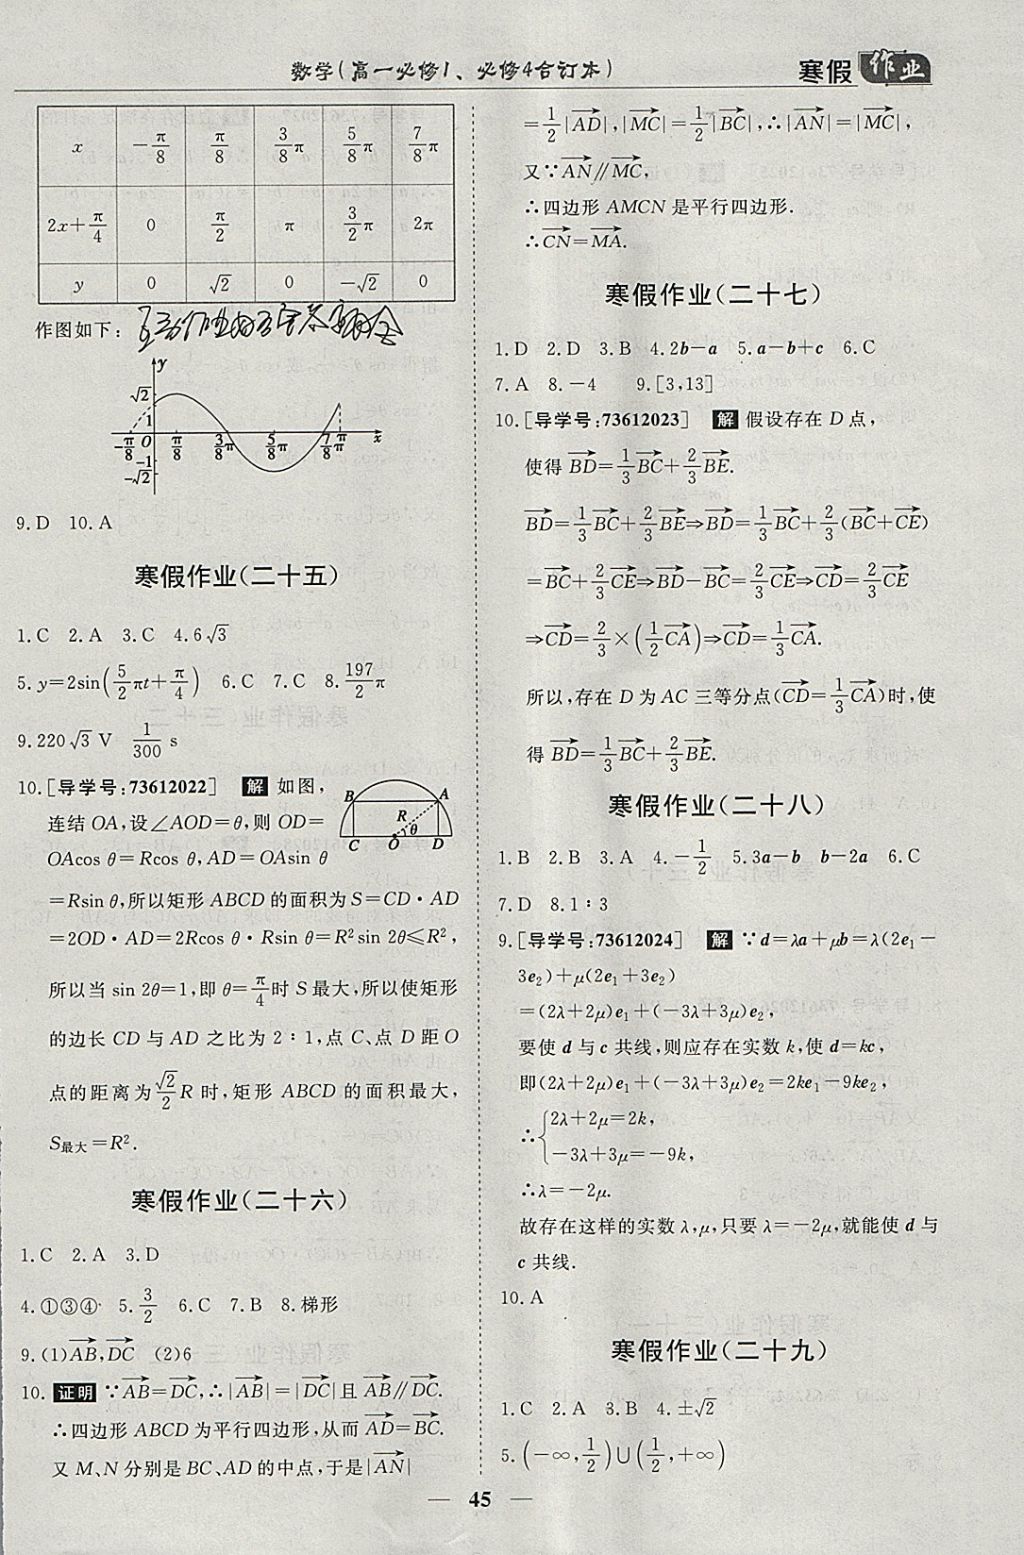 数学(高一必修1、必修4合订本)
寒假 作业
x −π/8 π/8 3/8π 5/8π 7/8π
2x+π/4 0 π/2 π 3/2π 2π
y 0 √2 0 −√2 0
作图如下:
y
√2
1
−π/8 O π/8 3/8π 5/8π 7/8π π x
−1
−√2
9.D 10.A
寒假作业(二十五)
1.C 2.A 3.C 4.6√3
5.y=2sin(5/2πt+π/4) 6.C 7.C 8.197/2π
9.220√3 V 1/300 s
10.[导学号:73612022] 解 如图,
连结OA,设∠AOD=θ,则OD=
OAcos θ=Rcos θ,AD=OAsin θ
B A R θ C O D
=Rsin θ,所以矩形ABCD的面积为S=CD·AD
=2OD·AD=2Rcos θ·Rsin θ=R²sin 2θ≤R²,
所以当sin 2θ=1,即θ=π/4时S最大,所以使矩形
的边长CD与AD之比为2∶1,点C、点D距O
点的距离为√2/2R时,矩形ABCD的面积最大,
S最大=R².
寒假作业(二十六)
1.C 2.A 3.D
4.①③④ 5.3/2 6.C 7.B 8.梯形
9.(1)AB→,DC→ (2)6
10.证明 ∵AB→=DC→,∴|AB→|=|DC→|且AB→∥DC→.
∴四边形ABCD为平行四边形,从而AD→=BC→.
又M、N分别是BC、AD的中点,于是|AN→|
=1/2|AD→|,|MC→|=1/2|BC→|,∴|AN→|=|MC→|,
又∵AN→∥MC→,
∴四边形AMCN是平行四边形.
∴CN→=MA→.
寒假作业(二十七)
1.D 2.D 3.B 4.2b−a 5.a−b+c 6.C
7.A 8.−4 9.[3,13]
10.[导学号:73612023] 解 假设存在D点,
使得BD→=1/3BC→+2/3BE→.
BD→=1/3BC→+2/3BE→⇒BD→=1/3BC→+2/3(BC→+CE→)
=BC→+2/3CE→⇒BD→−BC→=2/3CE→⇒CD→=2/3CE→
⇒CD→=2/3×(1/2CA→)⇒CD→=1/3CA→.
所以,存在D为AC三等分点(CD→=1/3CA→)时,使
得BD→=1/3BC→+2/3BE→.
寒假作业(二十八)
1.B 2.B 3.A 4.−1/2 5.3a−b b−2a 6.C
7.D 8.1∶3
9.[导学号:73612024] 解 ∵d=λa+μb=λ(2e₁−
3e₂)+μ(2e₁+3e₂)
=(2λ+2μ)e₁+(−3λ+3μ)e₂,
要使d与c共线,则应存在实数k,使d=kc,
即(2λ+2μ)e₁+(−3λ+3μ)e₂=2ke₁−9ke₂,
∴{2λ+2μ=2k,
−3λ+3μ=−9k,
∴λ=−2μ.
故存在这样的实数λ,μ,只要λ=−2μ,就能使d与
c共线.
10.A
寒假作业(二十九)
1.C 2.A 3.B 4.±√2
5.(−∞,1/2)∪(1/2,+∞)
— 45 —